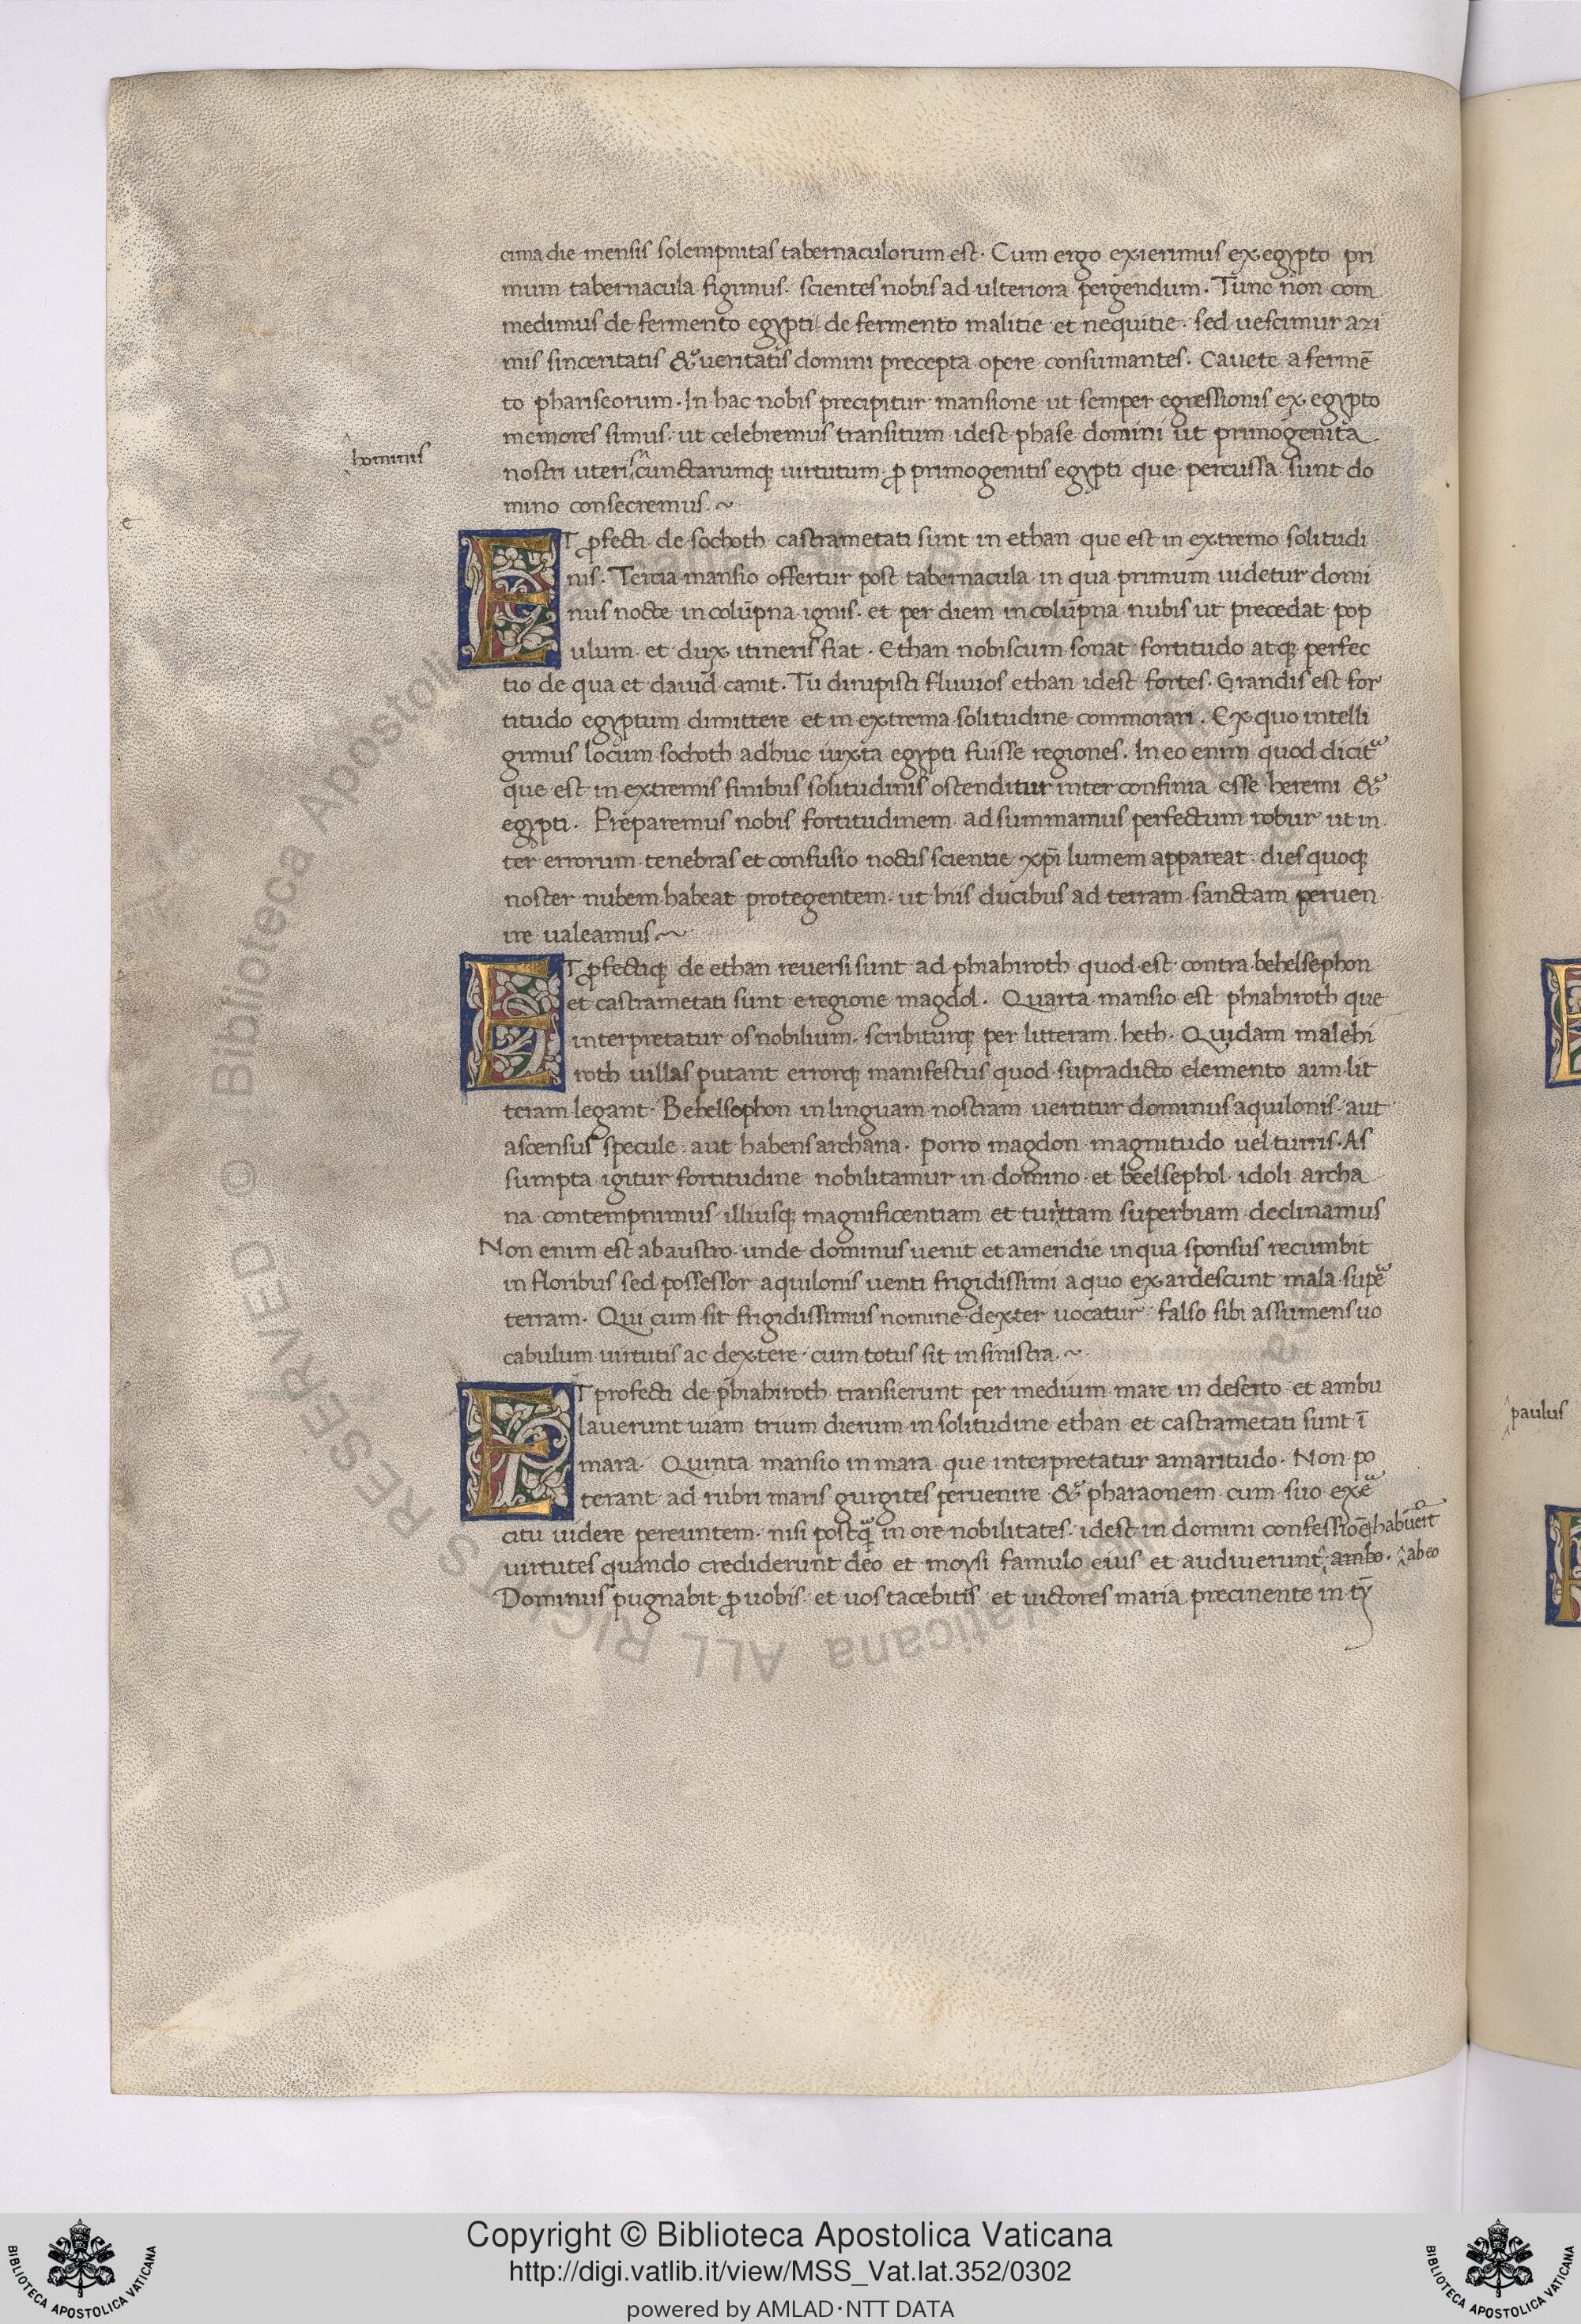 cima die mensis solempnitas tabernaculorum est. Cum ergo exierimus ex egypto pri
mum tabernacula figimus. scientes nobis ad ulteriora pergendum. Tunc non com
medimus de fermento egypti de fermento malitie et nequitie. sed uescimur azi
mis sinceritatis & ueritatis domini precepta opere consumantes. Cauete a fermē
to phariseorum. In hac nobis precipitur mansione ut semper egressionis ex egypto
memores simus. ut celebremus transitum idest phase domini ut primogenita
hominis
nostri uteris cunctarumq; uirtutum ꝓ primogenitis egypti que percussa sunt do
mino consecremus. ~
ET ꝓfecti de sochoth castrametati sunt in ethan que est in extremo solitudi
nis. Tercia mansio offertur post tabernacula in qua primum uidetur domi
nus nocte in colūpna ignis. et per diem in colūpna nubis ut precedat pop
ulum et dux itineris fiat. Ethan nobiscum sonat fortitudo atq; perfec
tio de qua et dauid canit. Tu dirupisti fluuios ethan idest fortes. Grandis est for
titudo egyptum dimittere et in extrema solitudine commorari. Ex quo intelli
gimus locum sochoth adhuc iuxta egypti fuisse regiones. In eo enim quod dicit᷑
que est in extremis finibus solitudinis ostenditur inter confinia esse heremi &
egypti. Preparemus nobis fortitudinem adsummamus perfectum robur ut in
ter errorum tenebras et confusio noctis scientie xp̄i lumem appareat. dies quoq;
noster nubem habeat protegentem. ut hiis ducibus ad terram sanctam peruen
ire ualeamus ~
ET ꝓfectiq; de ethan reuersi sunt ad phiahiroth quod est contra behelsephon
et castrametati sunt e regione magdol. Quarta mansio est phiahiroth que
interpretatur os nobilium. scribiturq; per litteram heth. Quidam male hi
roth uillas putant errorq; manifestus quod supradicto elemento aim lit
teram legant. Behelsephon in linguam nostram uertitur dominus aquilonis. aut
ascensus specule. aut habens archana. porro magdon magnitudo uel turris. As
sumpta igitur fortitudine nobilitamur in domino et beelsephol idoli archa
na contempnimus illiusq; magnificentiam et turritam superbiam declinamus
Non enim est ab austro. unde dominus uenit et a meridie in qua sponsus recumbit
in floribus sed possessor aquilonis uenti frigidissimi a quo exardescunt mala supe᷑
terram. Qui cum sit frigidissimus nomine dexter uocatur falso sibi assumens uo
cabulum uirtutis ac dextere. cum totus sit in sinistra. ~
ET profecti de phiahiroth transierunt per medium mare in deserto et ambu
lauerunt uiam trium dierum in solitudine ethan et castrametati sunt ī
mara. Quinta mansio in mara que interpretatur amaritudo. Non po
terant ad rubri maris gurgites peruenire & pharaonem cum suo exe᷑
citu uidere pereuntem. nisi postq̄ in ore nobilitates. idest in domini confessiōe habuer̄t
uirtutes quando crediderunt deo et moysi famulo eius et audiuerunt ambo. ab eo
Dominus pugnabit ꝓ uobis et uos tacebitis et uictores maria precinente in tȳ
paulus
Copyright © Biblioteca Apostolica Vaticana
http://digi.vatlib.it/view/MSS_Vat.lat.352/0302
powered by AMLAD·NTT DATA
BIBLIOTECA APOSTOLICA VATICANA
BIBLIOTECA APOSTOLICA VATICANA